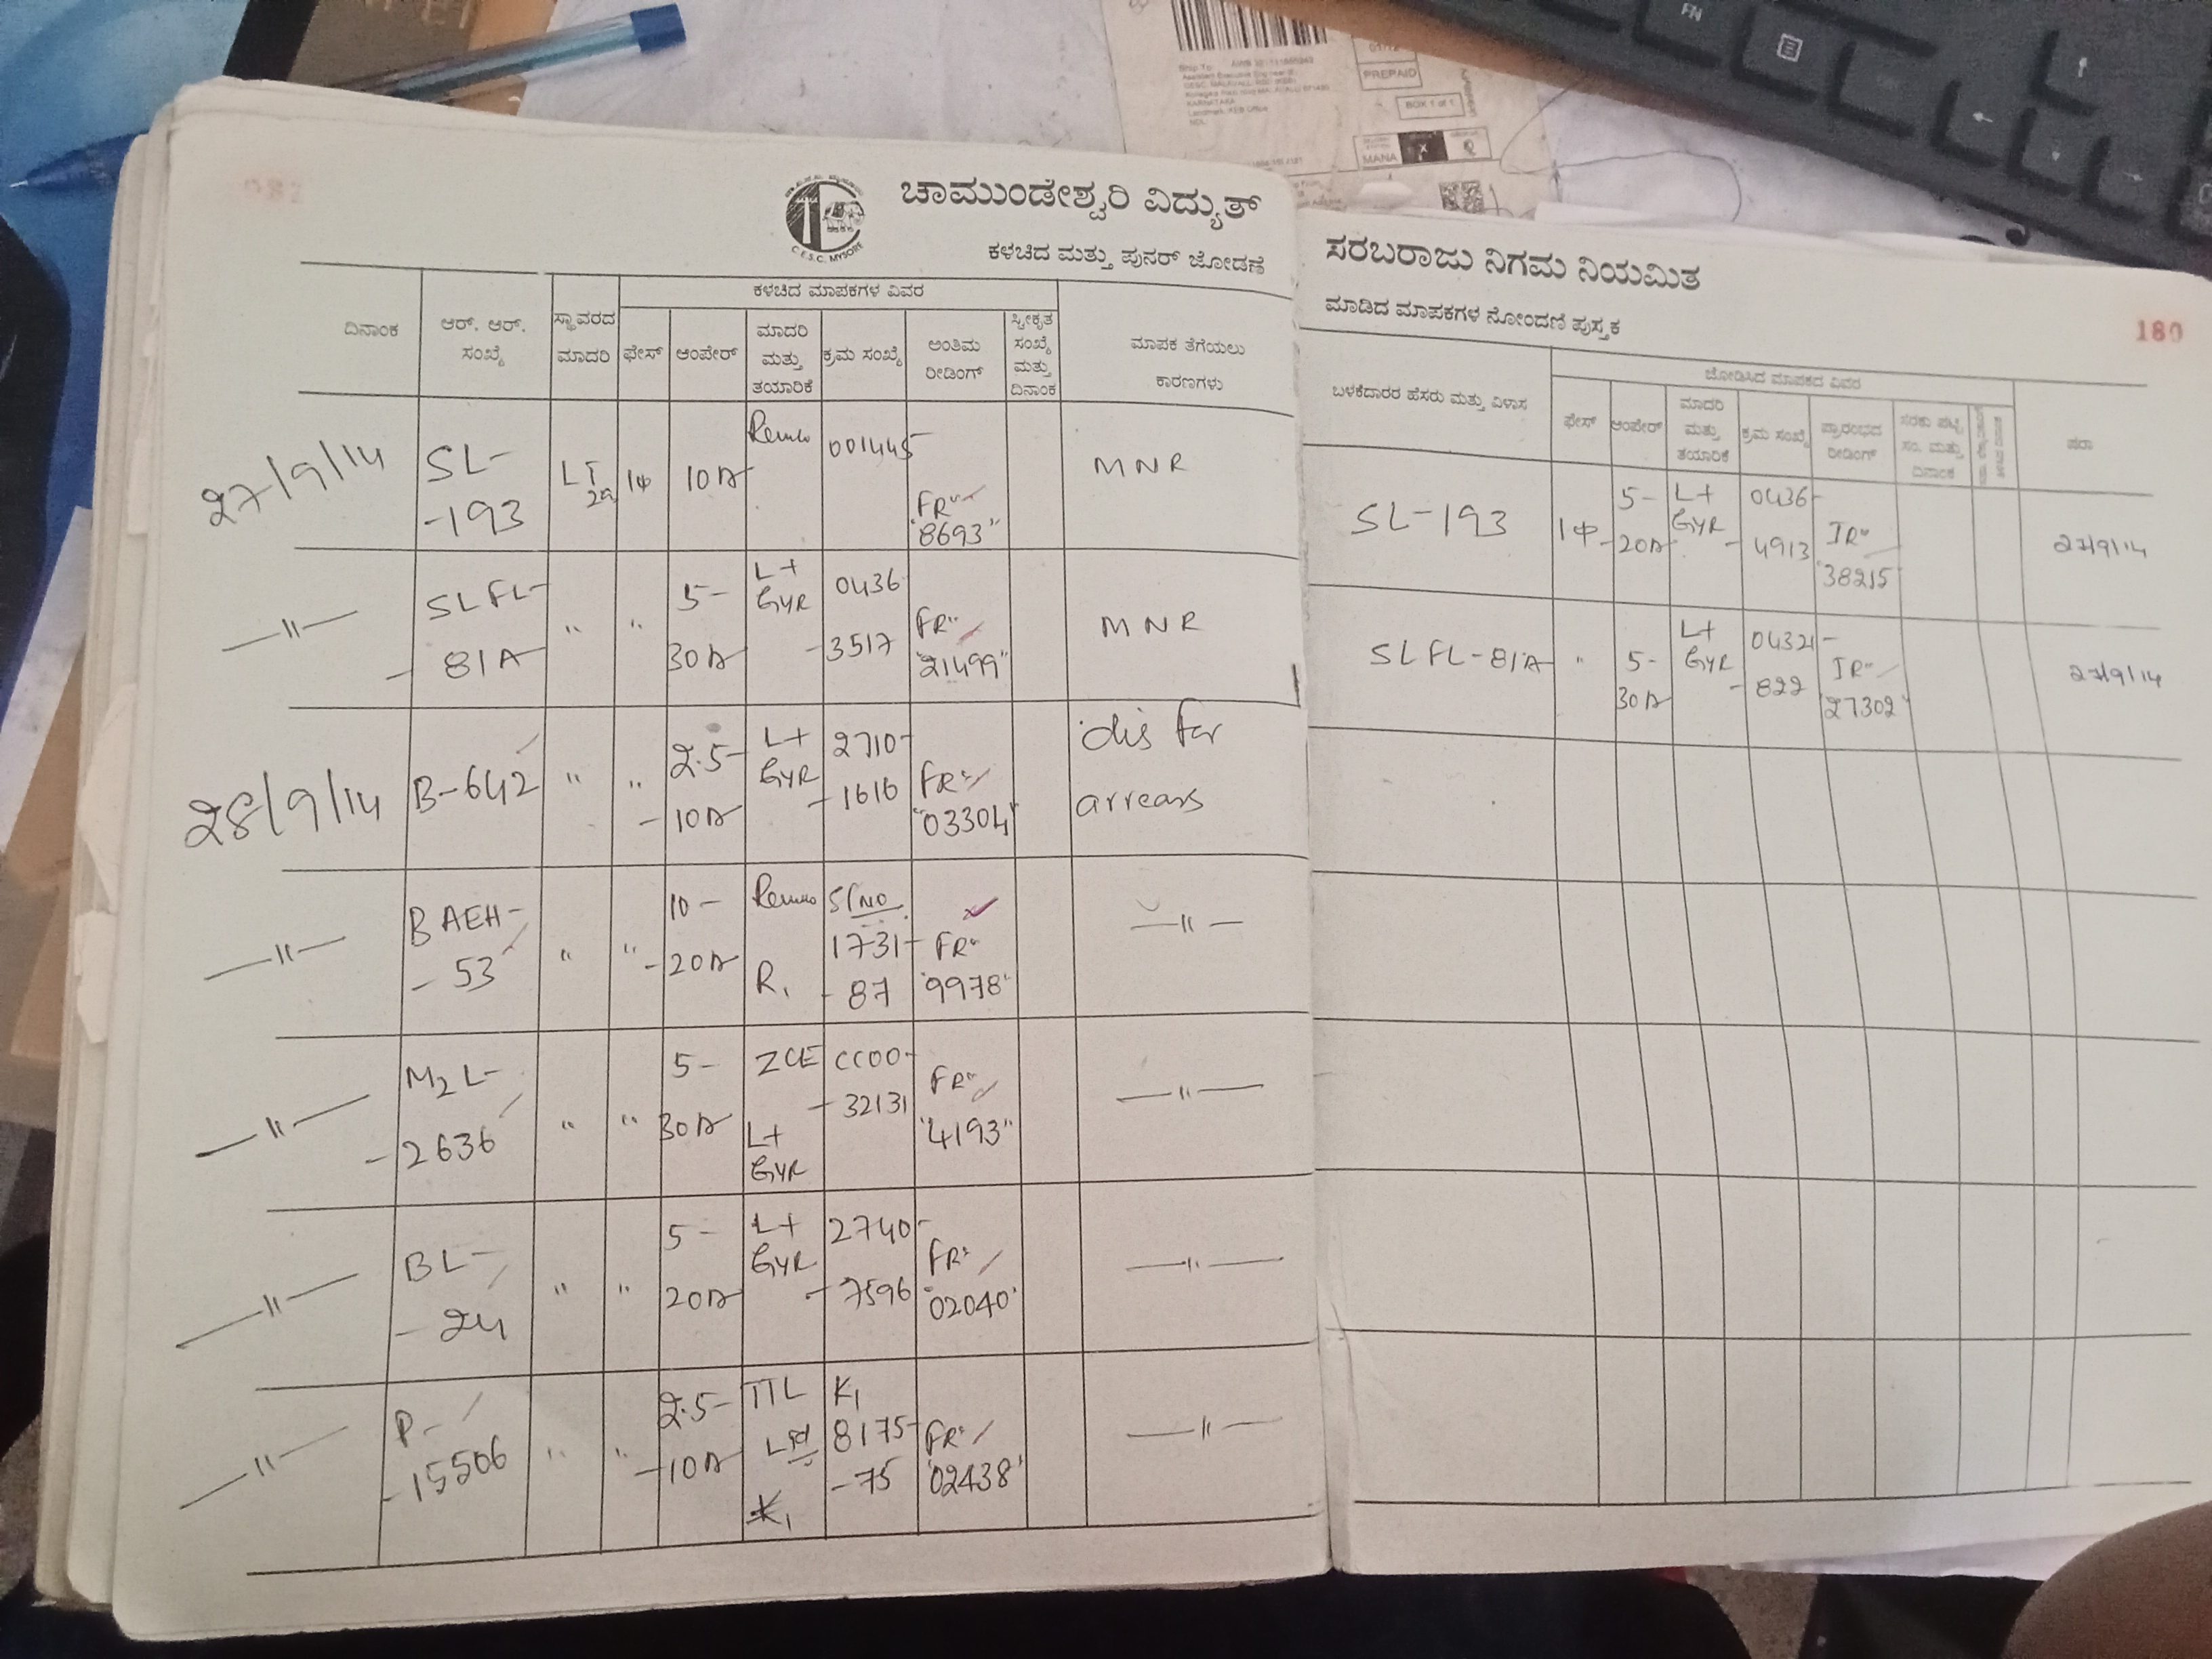 FN
PREPAID
BOX 1 of 1
MANA
ಚಾಮುಂಡೇಶ್ವರಿ ವಿದ್ಯುತ್
C.E.S.C. MYSORE
ಕಳಚಿದ ಮತ್ತು ಪುನರ್ ಜೋಡಣೆ
ಕಳಚಿದ ಮಾಪಕಗಳ ವಿವರ
ದಿನಾಂಕ
ಆರ್. ಆರ್. ಸಂಖ್ಯೆ
ಸ್ಥಾವರದ ಮಾದರಿ
ಫೇಸ್
ಆಂಪೇರ್
ಮಾದರಿ ಮತ್ತು ತಯಾರಿಕೆ
ಕ್ರಮ ಸಂಖ್ಯೆ
ಅಂತಿಮ ರೀಡಿಂಗ್
ಸ್ವೀಕೃತ ಸಂಖ್ಯೆ ಮತ್ತು ದಿನಾಂಕ
ಮಾಪಕ ತೆಗೆಯಲು ಕಾರಣಗಳು
27/9/14 SL- -193 LT 2a 1φ 10A Remco 001445 FR" "8693" MNR
—"— SLFL- - 81A " " 5- 30A L+ GYR 0436 -3517 FR" "21499" MNR
28/9/14 B-642 " " 2.5- -10A L+ GYR 2710- -1616 FR" "03304" dis for arrears
—"— BAEH- - 53 " " 10- -20A Remco R1 S/NO 1731- - 87 FR" "9978" —"—
—"— M2L- -2636 " " 5- 30A ZCE L+ GYR CC00- - 32131 FR" "4193" —"—
—"— BL- - 24 " " 5- 20A L+ GYR 2740- - 7596 FR" "02040" —"—
—"— P- -15506 " " 2.5- -10A TTL Ltd K1 K1 8175- -75 FR" "02438" —"—
ಸರಬರಾಜು ನಿಗಮ ನಿಯಮಿತ
ಮಾಡಿದ ಮಾಪಕಗಳ ನೋಂದಣಿ ಪುಸ್ತಕ
180
ಜೋಡಿಸಿದ ಮಾಪಕದ ವಿವರ
ಬಳಕೆದಾರರ ಹೆಸರು ಮತ್ತು ವಿಳಾಸ
ಫೇಸ್
ಆಂಪೇರ್
ಮಾದರಿ ಮತ್ತು ತಯಾರಿಕೆ
ಕ್ರಮ ಸಂಖ್ಯೆ
ಪ್ರಾರಂಭದ ರೀಡಿಂಗ್
ಸರಕು ಪಟ್ಟಿ ಸಂ. ಮತ್ತು ದಿನಾಂಕ
ಷರಾ
SL-193 1φ 5- -20A L+ GYR 0436- - 4913 IR" "38215" 27/9/14
SLFL-81A " 5- 30A L+ GYR 04321- - 822 IR" "27302" 27/9/14